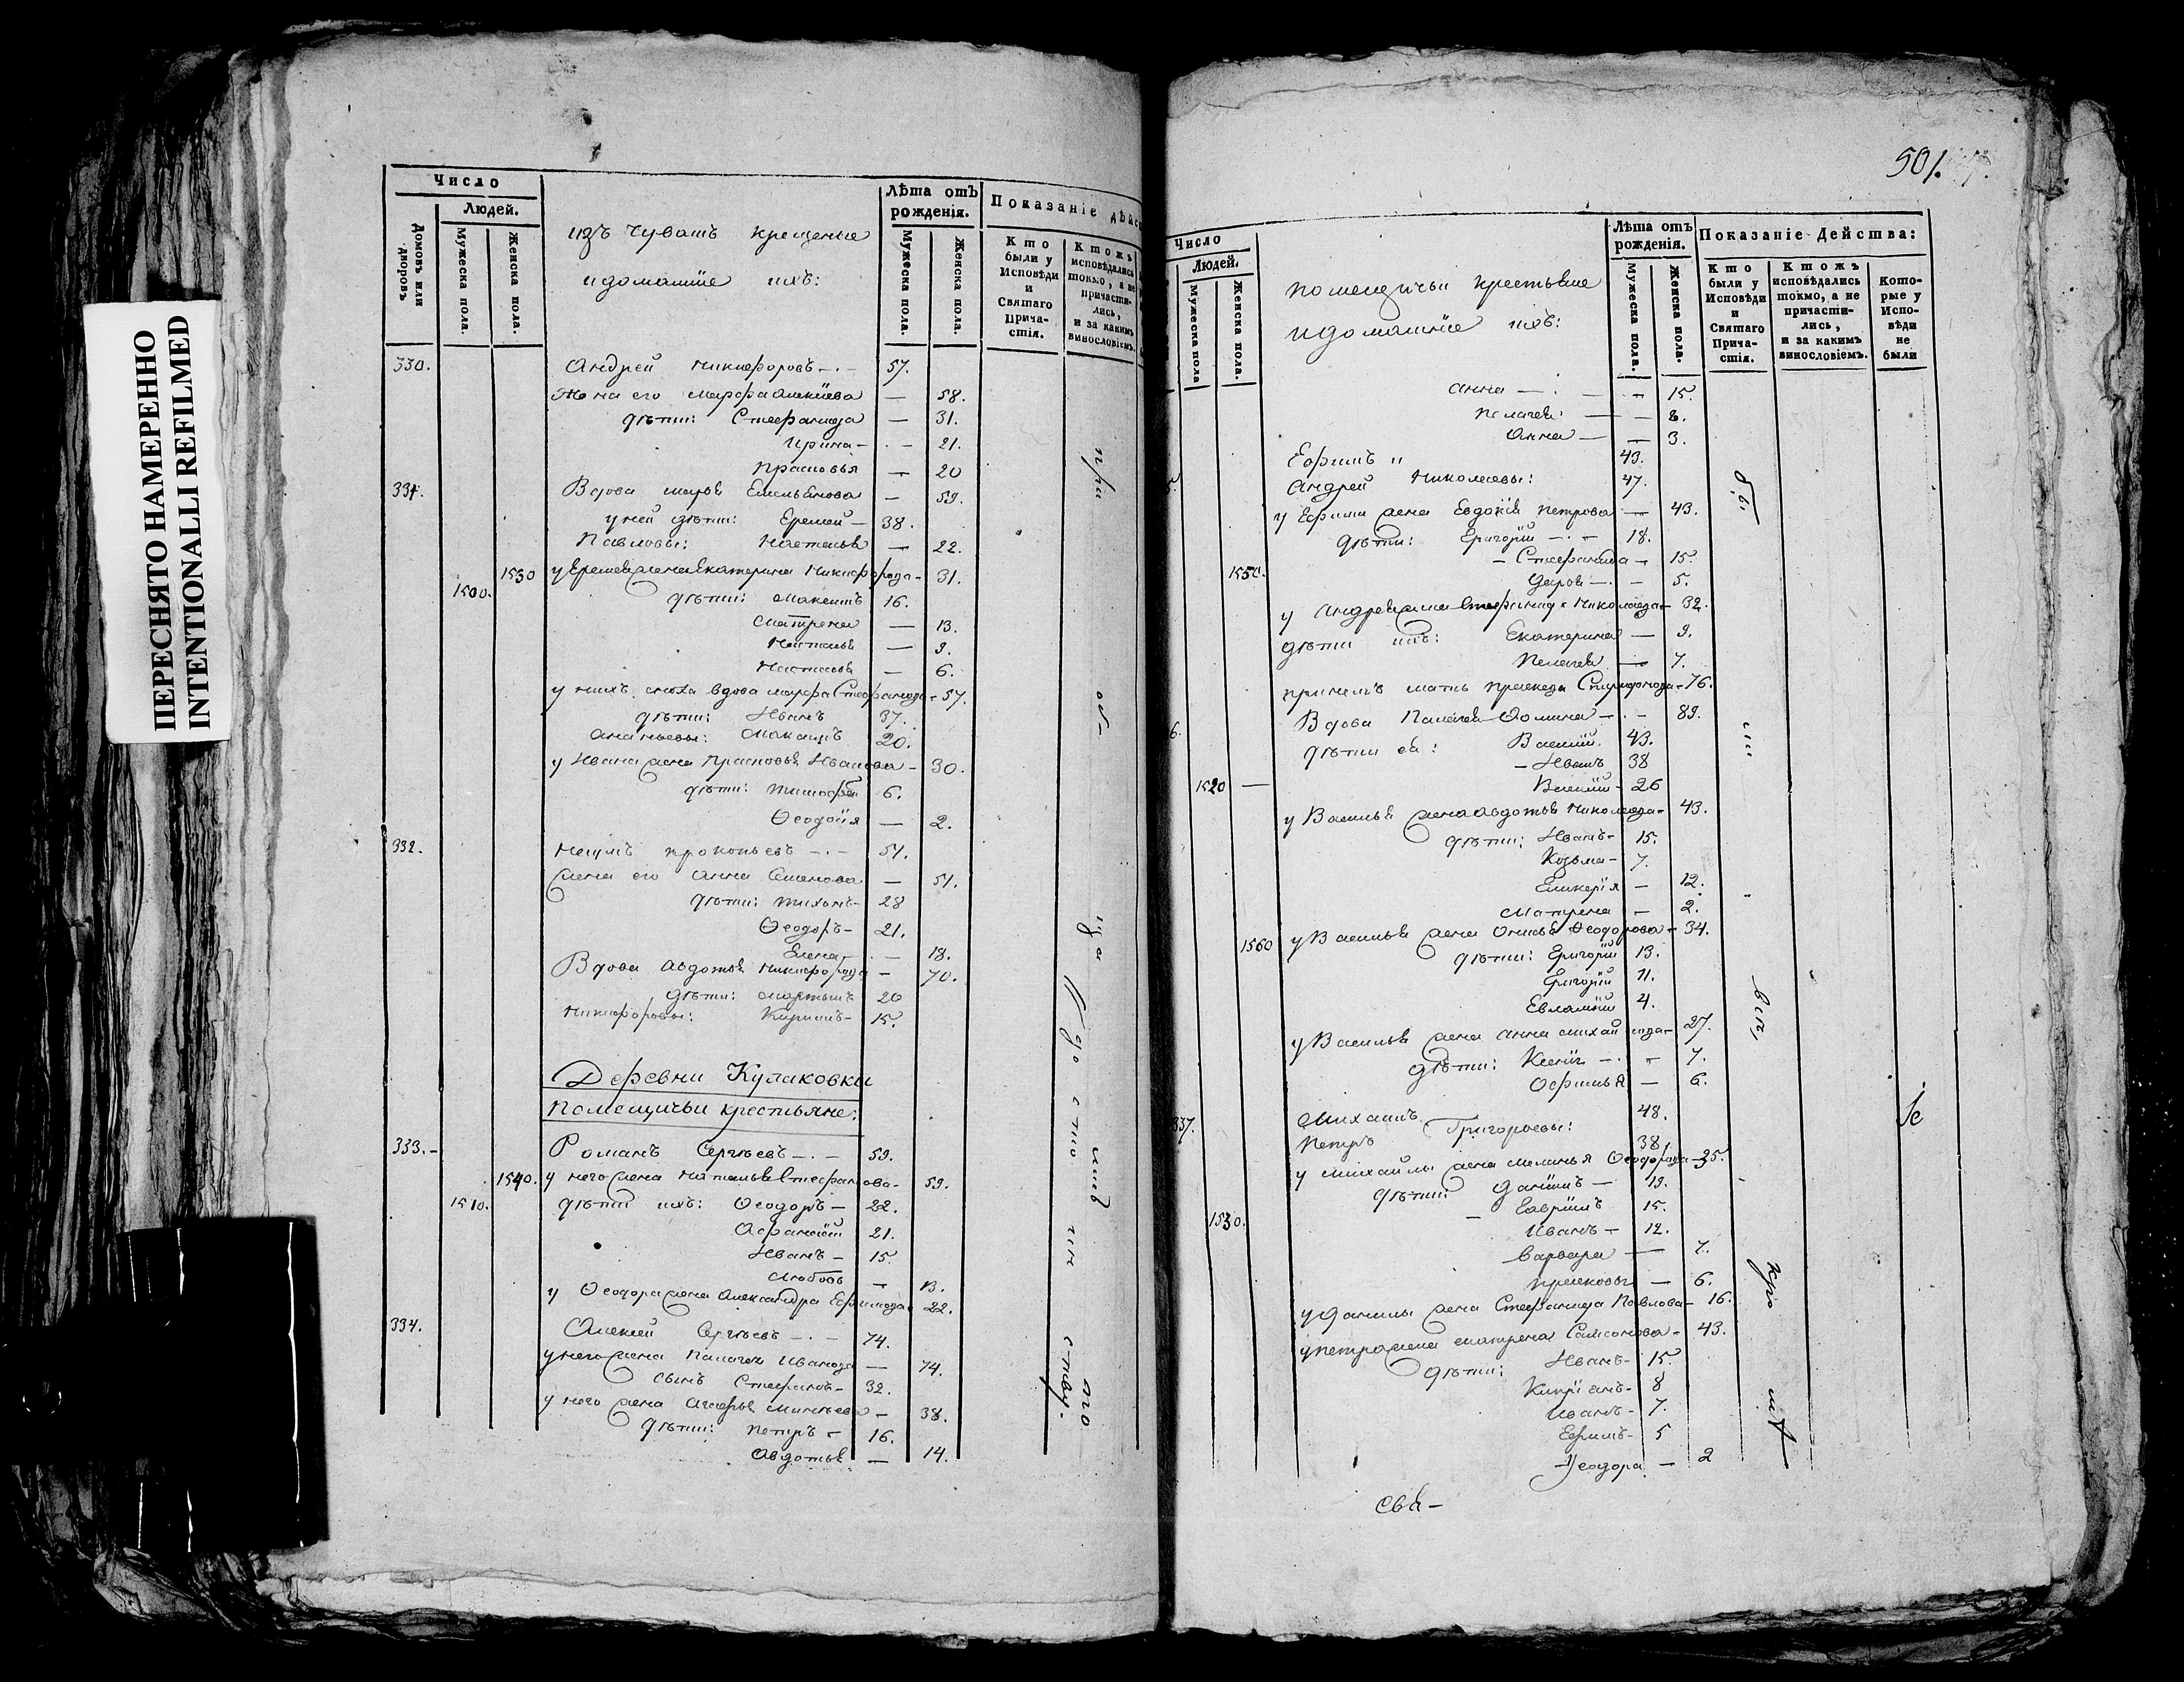 ПЕРЕСНЯТО НАМЕРЕННО
INTENTIONALLI REFILMED
Число
Людей.
Домовъ или дворовъ
Мужеска пола.
Женска пола.
изъ чувашъ крещеные
и домашніе ихъ:
Лѣта отъ рожденія.
Мужеска пола.
Женска пола.
Показаніе
Кто были у Исповѣди и Святаго Причастія.
Ктожъ исповѣдались токмо, а не причастились, и за какимъ винословіемъ.
330. Андрей Никифоровъ — 57.
Жена его Марфа Алексіева — 58.
дѣти: Стефанида — 31.
Ирина — 21.
Прасковья — 20
331. Вдова Марья Емельянова — 59.
у ней дѣти: Еремей — 38.
Павловы: Наталья — 22.
1530 у Еремея жена Екатерина Никифорова — 31.
1500. дѣти: Максимъ 16.
Матрена — 13.
Наталья — 9.
Настасья — 6.
у нихъ сноха вдова Марфа Стефанова — 57.
дѣти: Иванъ 37.
Ананьевы: 20.
у Ивана жена Прасковья Иванова — 30.
дѣти: Тимофей 6.
Ѳеодосія — 2.
332. Наумъ Прокопьевъ — 51.
жена его Анна Семенова — 51.
дѣти: Тихонъ — 28
Ѳеодоръ — 21.
Елена — 18.
Вдова Авдотья Никифорова — 70.
дѣти: Мартынъ 20
Никифоровы: 15.
Деревни Кулаковки
Помещичьи крестьяне:
333. — Романъ Сергѣевъ — 59.
1540. у него жена Наталья Стефанова — 59.
1510. дѣти ихъ: Ѳеодоръ — 22.
Афанасій 21.
Иванъ — 15.
Любовь — 13.
у Ѳеодора жена Александра Ефимова — 22.
334. Алексей Сергѣевъ — 74.
у него жена Палагея Иванова — 74.
сынъ Стефанъ — 32.
у него жена Минѣева — 38.
дѣти: Петръ — 16.
Авдотья — 14.
501.
Число
Людей.
Мужеска пола
Женска пола.
помещичьи крестьяне
и домашніе ихъ:
Лѣта отъ рожденія.
Мужеска пола.
Женска пола.
Показаніе Действа:
Кто были у Исповѣди и Святаго Причастія.
Ктожъ исповѣдались токмо, а не причастились, и за какимъ винословіемъ.
Которые у Исповѣди не были
Анна — 15.
Пелагея — 8.
Анна — 3.
Ефимъ и 43.
Андрей Николаевы: 47.
у Ефима жена Евдокія Петрова — 43.
дѣти: Григорій — 18.
— Стефанида — 15.
1550. Дарья — 5.
у Андрея жена Стефанида Николаева — 32.
дѣти ихъ: Екатерина — 9.
Пелагея — 7.
при нихъ мать Спиридонова — 76.
6. Вдова Палагея Фомина — 89.
дѣти ея: Василій. 43.
— Иванъ 38
1520 — Василій — 26
у Василья жена Авдотья Николаева — 43.
дѣти: Иванъ — 15.
Козьма — 7.
— 12.
Матрена — 2.
1560 у Василья жена Ѳеодорова — 34.
дѣти: Григорій 13.
Григорій 11.
Евлампій 4.
у Василья жена Анна Михайлова — 27.
дѣти: Ксенія — 7.
— 6.
337. Михаилъ 48.
Петръ Григорьевы: 38.
у Михайлы жена Меланья Ѳеодорова — 35.
дѣти: Даніилъ — 19.
— Гавріилъ 15.
1530. Иванъ — 12.
Варвара — 7.
Прасковья — 6.
у Данилы жена Стефанида Павлова — 16.
у Петра жена Матрена Самсонова — 43.
дѣти: Иванъ — 15.
Кипріянъ — 8
Иванъ — 7.
Ефимъ — 5
Ѳеодора — 2